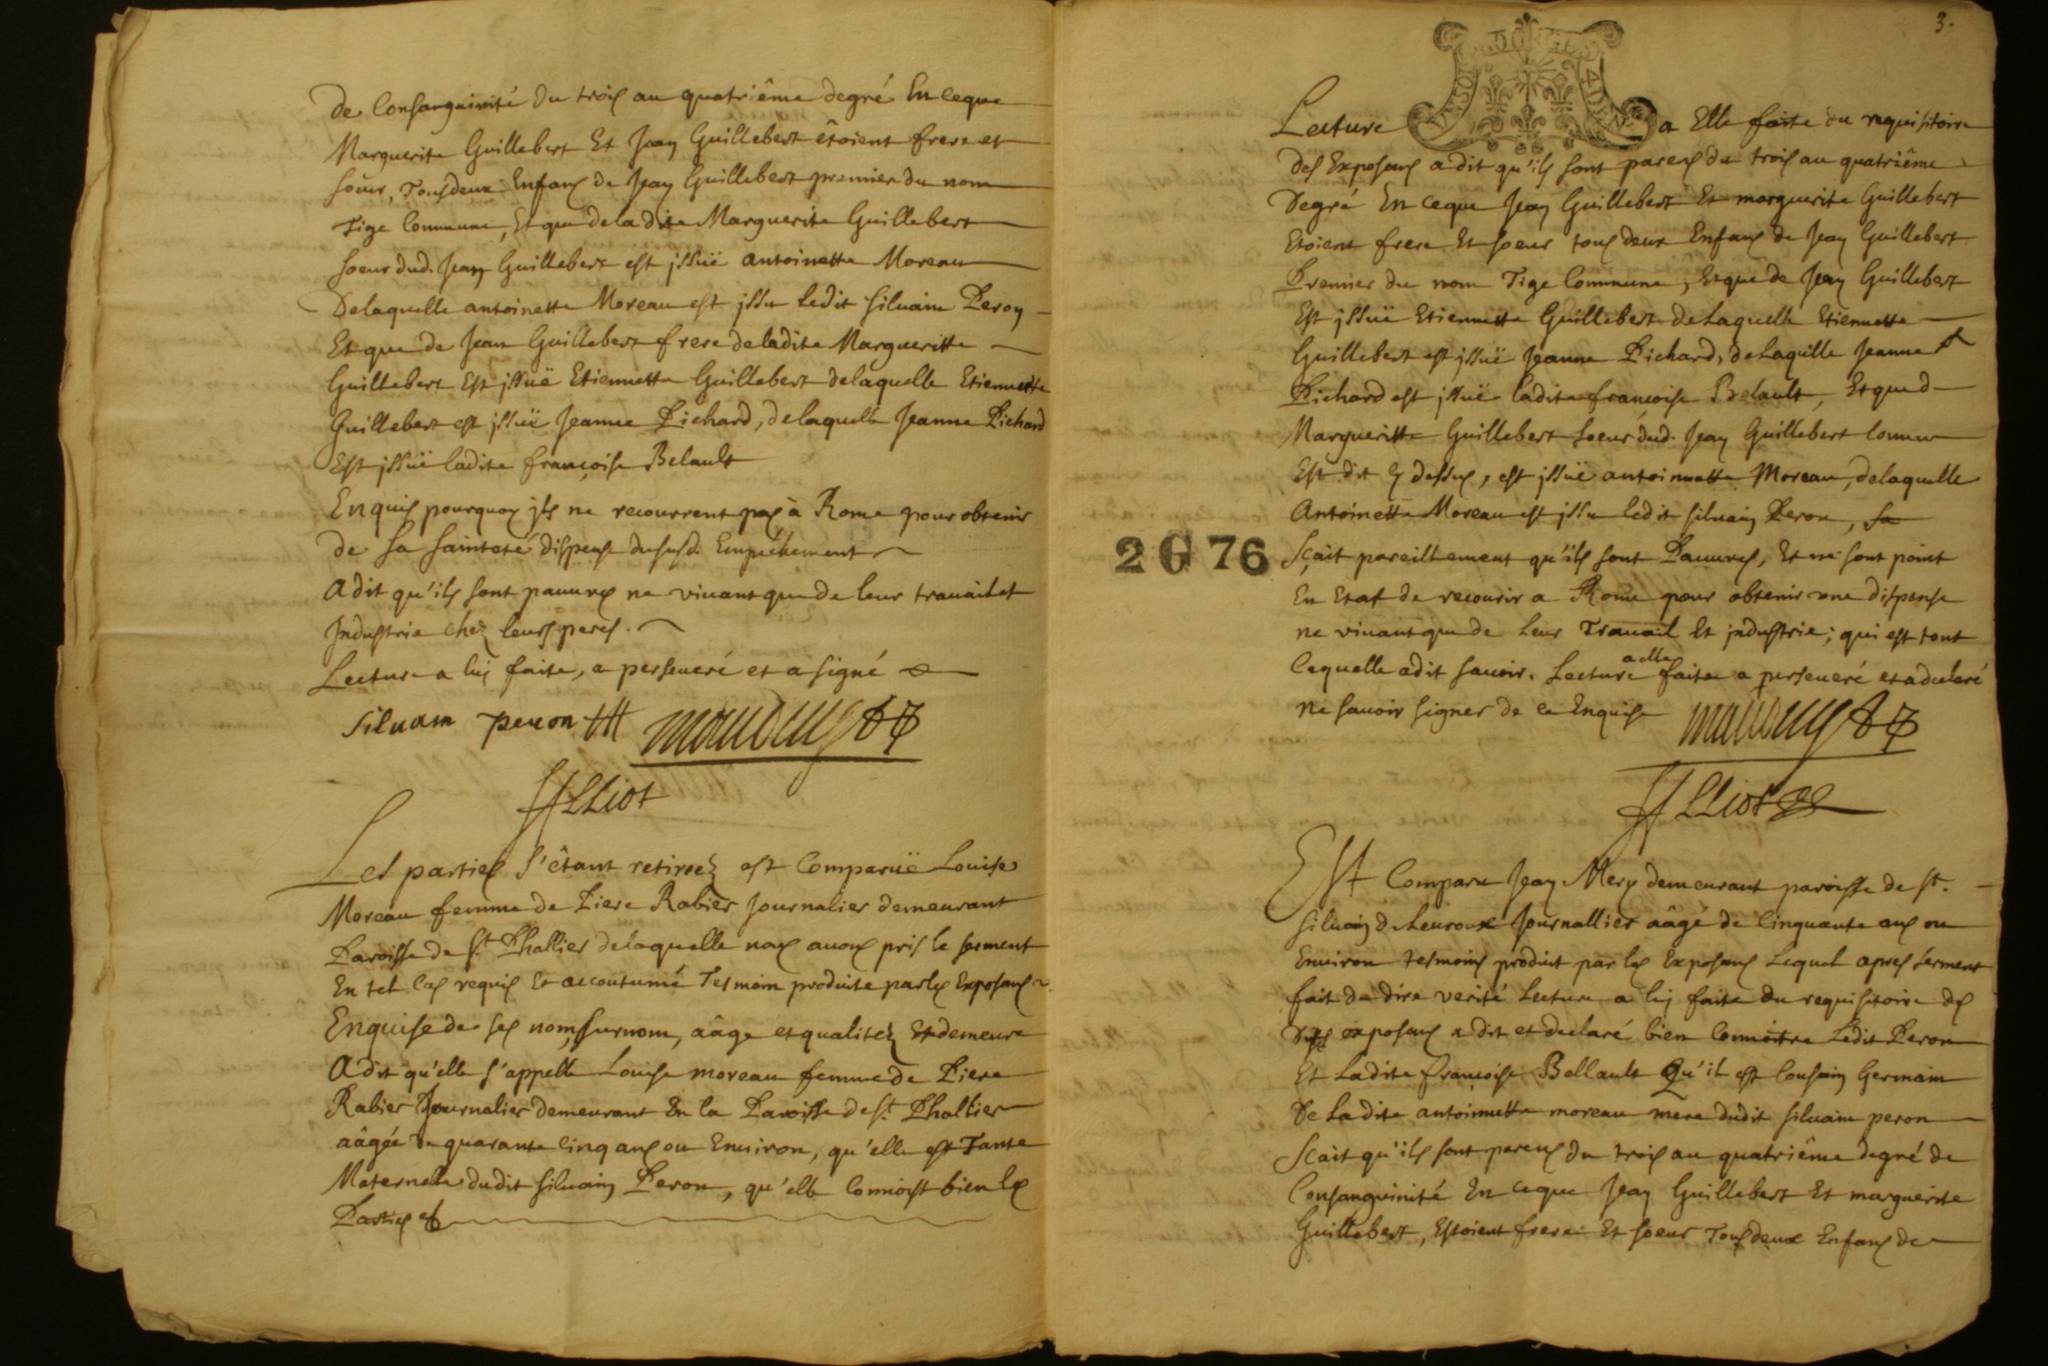 de Consanguinité du trois au quatriême degré En ceque
Marguerite Guillebert Et Jean Guillebert êtoient frere et
soeur, Tous deux Enfans de Jean Guillebert premier du nom
Tige Commune, Et que de la dite Marguerite Guillebert
soeur dud. Jean Guillebert est jssuë antoinette Moreau
De laquelle antoinette Moreau est jssu ledit silvain Peron
Et que de Jean Guillebert frere de ladite Margueritte
Guillebert Est jssuë Etiennette Guillebert de laquelle Etiennette
Guillebert est jssuë Jeanne Pichard, de laquelle Jeanne Pichard
Est jssuë ladite francoise Belault
Enquis pourquoy jls ne recourrent pas à Rome pour obtenir
de sa sainteté dispense du susd. Empéchement
A dit qu'ils sont pauures ne viuant que de leur trauail et
Jndustrie chez leurs peres.
Lecture a luy faite, a perseueré et a signé
siluain peron
FELLiot
Les parties s'êtant retirées est Comparüe Louise
Moreau femme de Piere Rabier Journalier demeurant
Paroisse de St. Phallier de laquelle nous auons pris le serment
En tel cas requis Et accoutumé Tesmoin produite par les Exposans
Enquise de ses nom, surnom, aâge et qualitez Et demeure
A dit qu'elle s'appelle Louise moreau femme de Piere
Rabier Journalier demeurant En la Paroisse de St. Phallier
aâgée de quarante Cinq ans ou Enuiron, qu'elle est Tante
Maternelle dudit siluain Peron, qu'elle Connoist bien les
Parties et
3.
Lecture a Elle faite du requisitoire
des Exposans a dit qu'ils sont parens du trois au quatriême
Degré En ceque Jean Guillebert Et marguerite Guillebert
Etoient frere Et soeur tous deux Enfans de Jean Guillebert
Premier du nom Tige Commune, Et que de Jean Guillebert
Est jssuë Etiennette Guillebert de Laquelle Etiennette
Guillebert est jssuë Jeanne Pichard, de Laquelle Jeanne
Pichard est jssuë ladite francoise Belault, Et que d
Margueritte Guillebert soeur dud. Jean Guillebert Comme
Est dit cy dessus, est jssuë antoinette Moreau, de laquelle
Antoinette Moreau est jssu ledit siluain Peron, sa
2 G 76
sçait pareillement qu'ils sont Pauures, Et ne sont point
En Etat de recourir a Rome pour obtenir une dispense
ne viuant que de Leur Trauail Et jndustrie; qui est tout
Cequelle a dit sauoir. Lecture a elle faite a perseueré et a declaré
ne sauoir signer de ce Enquise
FELLiot
Est Comparu Jean Mery demeurant paroisse de St.
siluain de Leuroux Journallier aâgé de Cinquante ans ou
Enuiron tesmoin produit par les Exposans Lequel apres serment
fait de dire verité Lecture a luy faite du requisitoire des
dits exposans a dit et declaré bien Connoitre Ledit Peron
Et Ladite francoise Bellault Qu'il est Cousin Germain
De Ladite antoinette moreau mere dudit siluain peron
sçait qu'ils sont parens du trois au quatriême degré de
Consanguinité En ceque Jean Guillebert Et marguerite
Guillebert, Estoient frere Et soeur Tous deux Enfans de